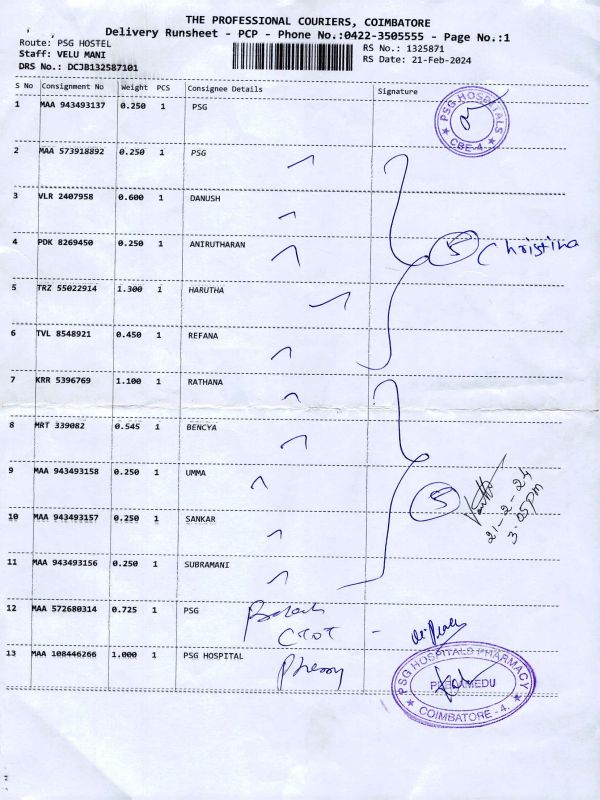 THE PROFESSIONAL COURIERS, COIMBATORE
Delivery Runsheet - PCP - Phone No.:0422-3505555 - Page No.:1
Route: PSG HOSTEL
RS No.: 1325871
Staff: VELU MANI
RS Date: 21-Feb-2024
DRS No.: DCJB132587101
S No Consignment No Weight PCS Consignee Details Signature
1 MAA 943493137 0.250 1 PSG
PSG HOSPITALS
CBE-4.
2 MAA 573918892 0.250 1 PSG
3 VLR 2407958 0.600 1 DANUSH
4 PDK 8269450 0.250 1 ANIRUTHARAN
5 Christina
5 TRZ 55022914 1.300 1 HARUTHA
6 TVL 8548921 0.450 1 REFANA
7 KRR 5396769 1.100 1 RATHANA
8 MRT 339082 0.545 1 BENCYA
9 MAA 943493158 0.250 1 UMMA
5
21-2-24
3.05PM
10 MAA 943493157 0.250 1 SANKAR
11 MAA 943493156 0.250 1 SUBRAMANI
12 MAA 572680314 0.725 1 PSG
13 MAA 108446266 1.000 1 PSG HOSPITAL
PSG HOSPITALS PHARMACY
PEELAMEDU
COIMBATORE - 4.